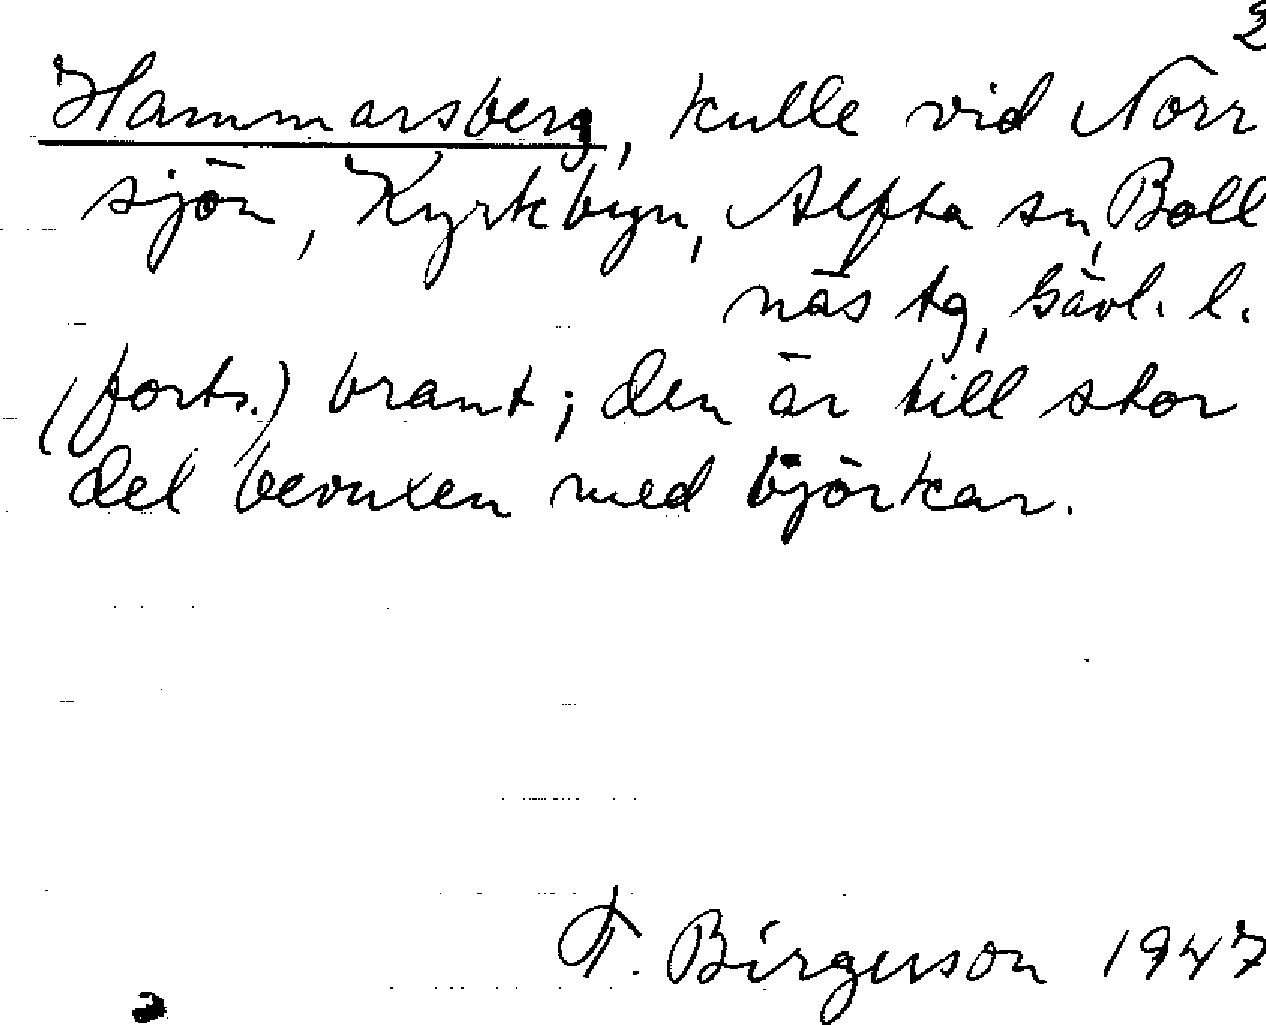 2
Hammarsberg, kulle vid Norr
sjön, Kyrkbyn, Alfta sn, Boll
näs tg, Gävl. l.
(forts.) brant; den är till stor
del bevuxen med björkar.
F. Birgerson 1947